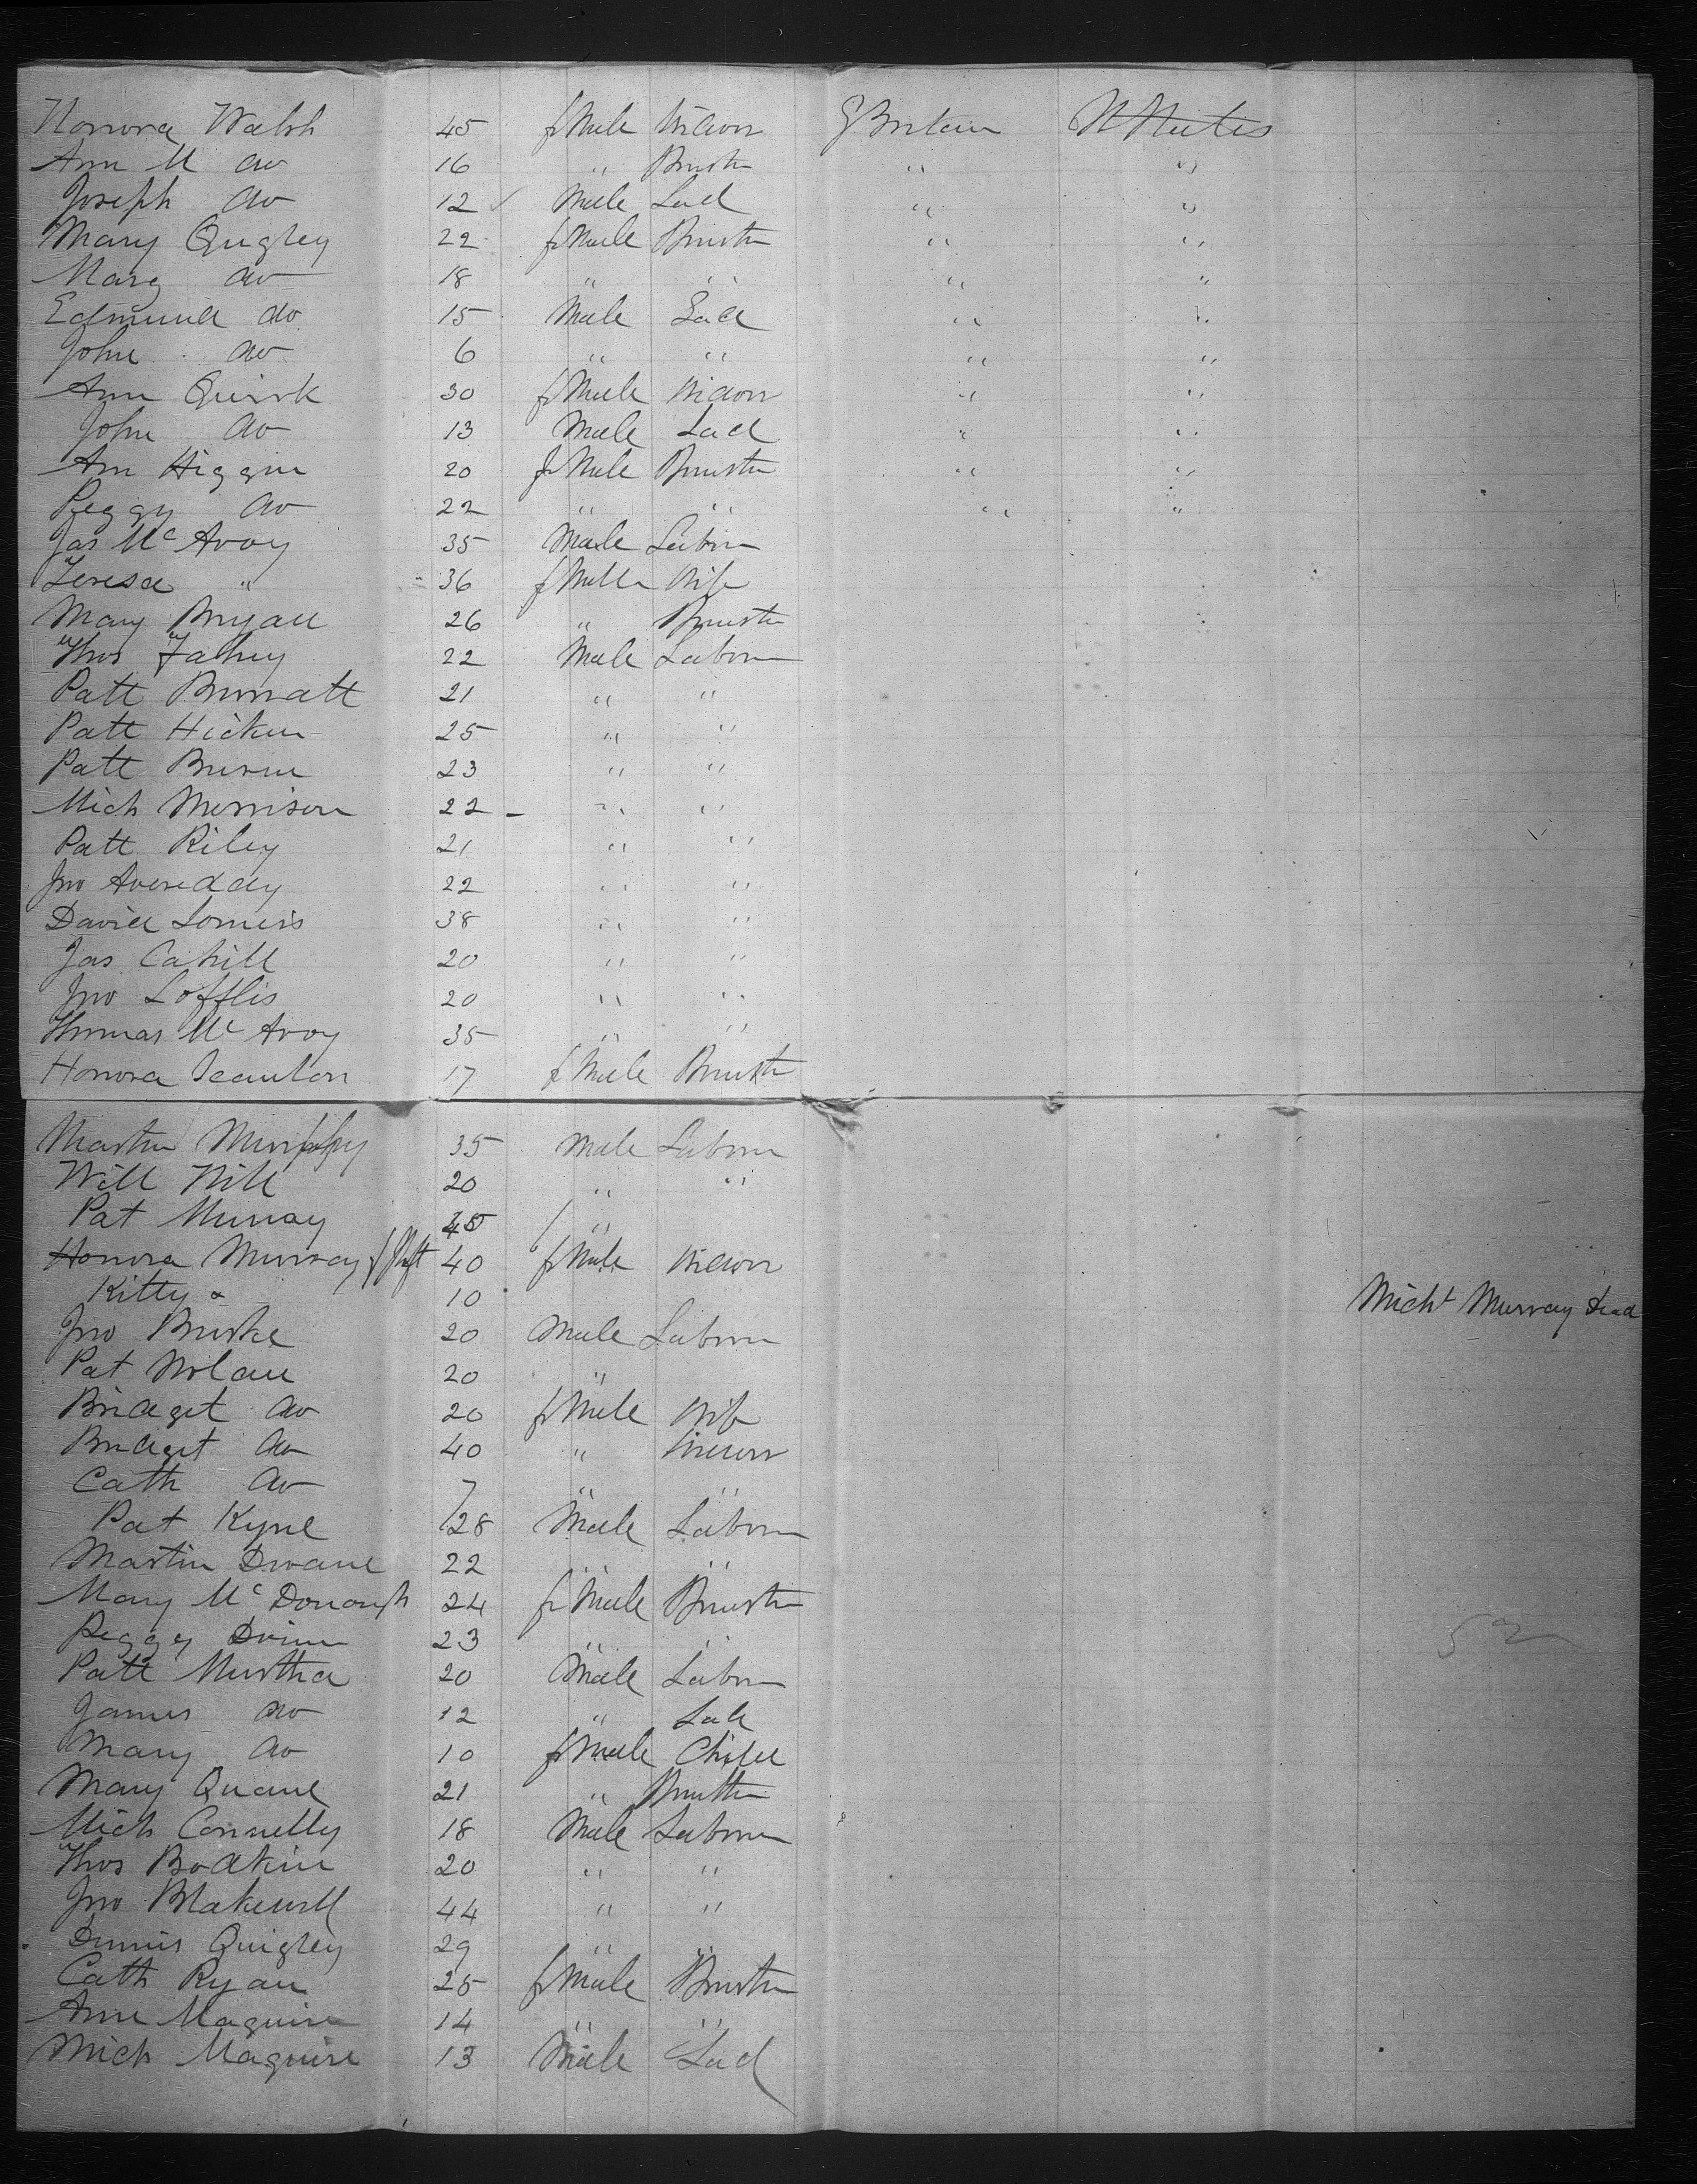 Honora Walsh 45 fMale Widow G Britain U States
Ann M do 16 " " "
Joseph do 12 Male Lad " "
Mary Quigley 22 fMale " "
Marg do 18 " " " "
Edmund do 15 Male Lad " "
John do 6 " " " "
Ann Quirk 30 fMale Widow " "
John do 13 Male Lad " "
Ann Higgin 20 fMale " "
Peggy do 22 " " " "
Jas McAvoy 35 Male Labor
Teresa " 36 fMale Wife
Mary Bryan 26 "
Thos Fahey 22 Male Labor
Patt 21 " "
Patt Hicken 25 " "
Patt 23 " "
Mich Morrison 22 " "
Patt Riley 21 " "
Jno 22 " "
David Somers 38 " "
Jas Cahill 20 " "
Jno Lofflis 20 " "
Thomas McAvoy 35 " "
Honora Scanlon 17 fMale
Martin Murphy 35 Male Labor
Will Hill 20 " "
Pat Murray 45 "
Honora Murray 40 fMale Widow
Kitty 10 Micht Murray dead
Jno Burke 20 Male Labor
Pat Nolan 20 "
Bridget do 20 fMale Wife
Bridget do 40 " Widow
Cath do 7 " "
Pat Kyne 28 Male Labor
Martin Dwane 22 " "
Mary McDonough 24 fMale
Peggy 23 " "
Patt Murtha 20 Male Labor
James do 12 " Lad
Mary do 10 fMale Child
Mary Quane 21 "
Mich Connelly 18 Male Labor
Thos Bodkin 20 " "
Jno Blakewell 44 " "
Dennis Quigley 29 " "
Cath Ryan 25 fMale
Ann Maguire 14 " "
Mich Maguire 13 Male Lad